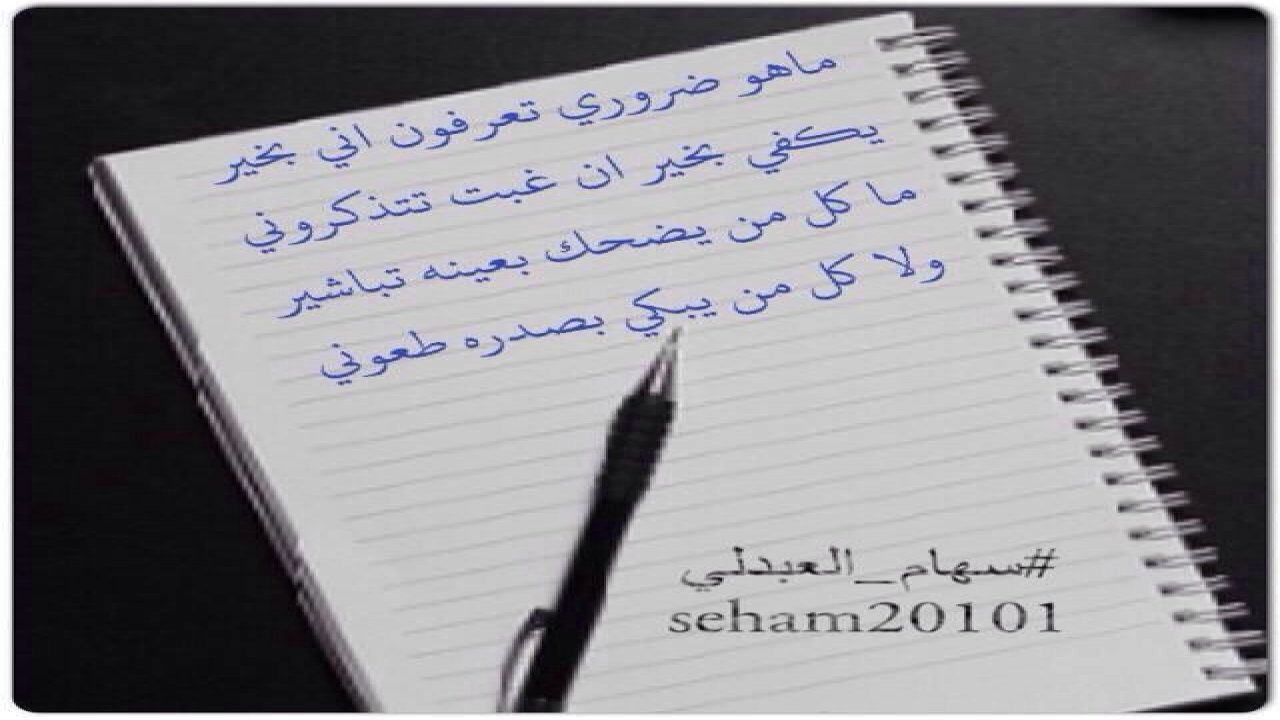 ماهو ضروري تعرفون اني بخير
يكفي بخير ان غبت تتذكروني
ما كل من يضحك بعينه تباشير
ولا كل من يبكي بصدره طعوني
#سهام_العبدلي
seham20101